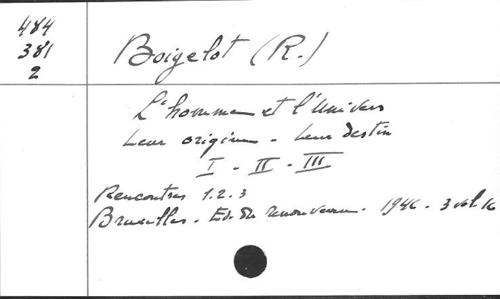 484
381
2
Boigelot (R.)
L'homme et l'Univers
Leur origine - Leur destin
I - II - III
Rencontres 1.2.3
Bruxelles. Ed. du renouveau. 1946 - 3 vol. 16